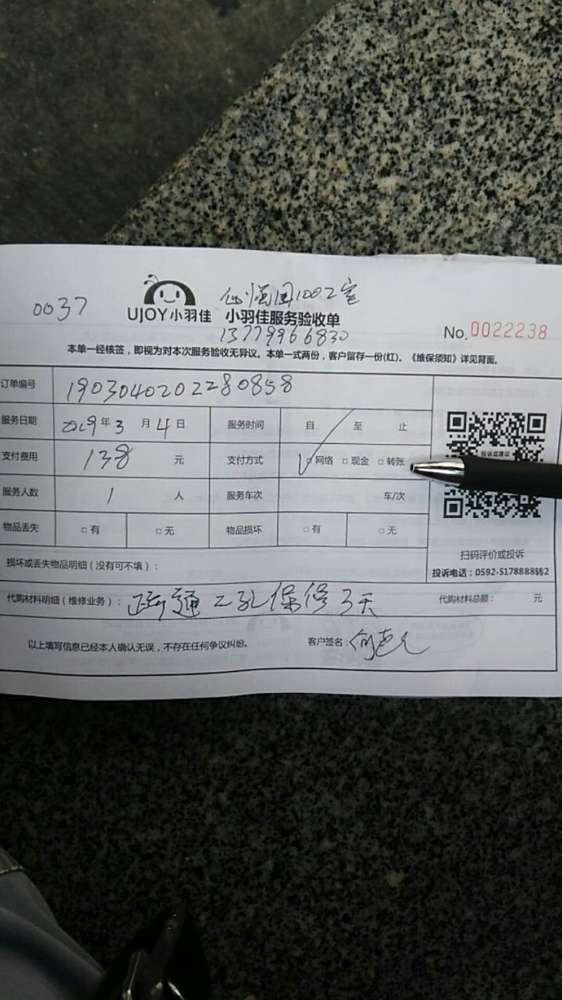 1002室
0037 UJOY小羽佳 小羽佳服务验收单
13779966830
No.0022238
本单一经核签，即视为对本次服务验收无异议。本单一式两份，客户留存一份(红)。《维保须知》详见背面。
订单编号 1903040202280858
服务日期 2019年3月4日 服务时间 自 至 止
支付费用 138 元 支付方式 □网络 □现金 □转账
投诉或建议
服务人数 1 人 服务车次 车/次
物品丢失 □有 □无 物品损坏 □有 □无
扫码评价或投诉
损坏或丢失物品明细（没有可不填）：
投诉电话：0592-5178888转2
代购材料明细（维修业务）：疏通2孔保修3天 代购材料总额： 元
以上填写信息已经本人确认无误，不存在任何争议纠纷。 客户签名：